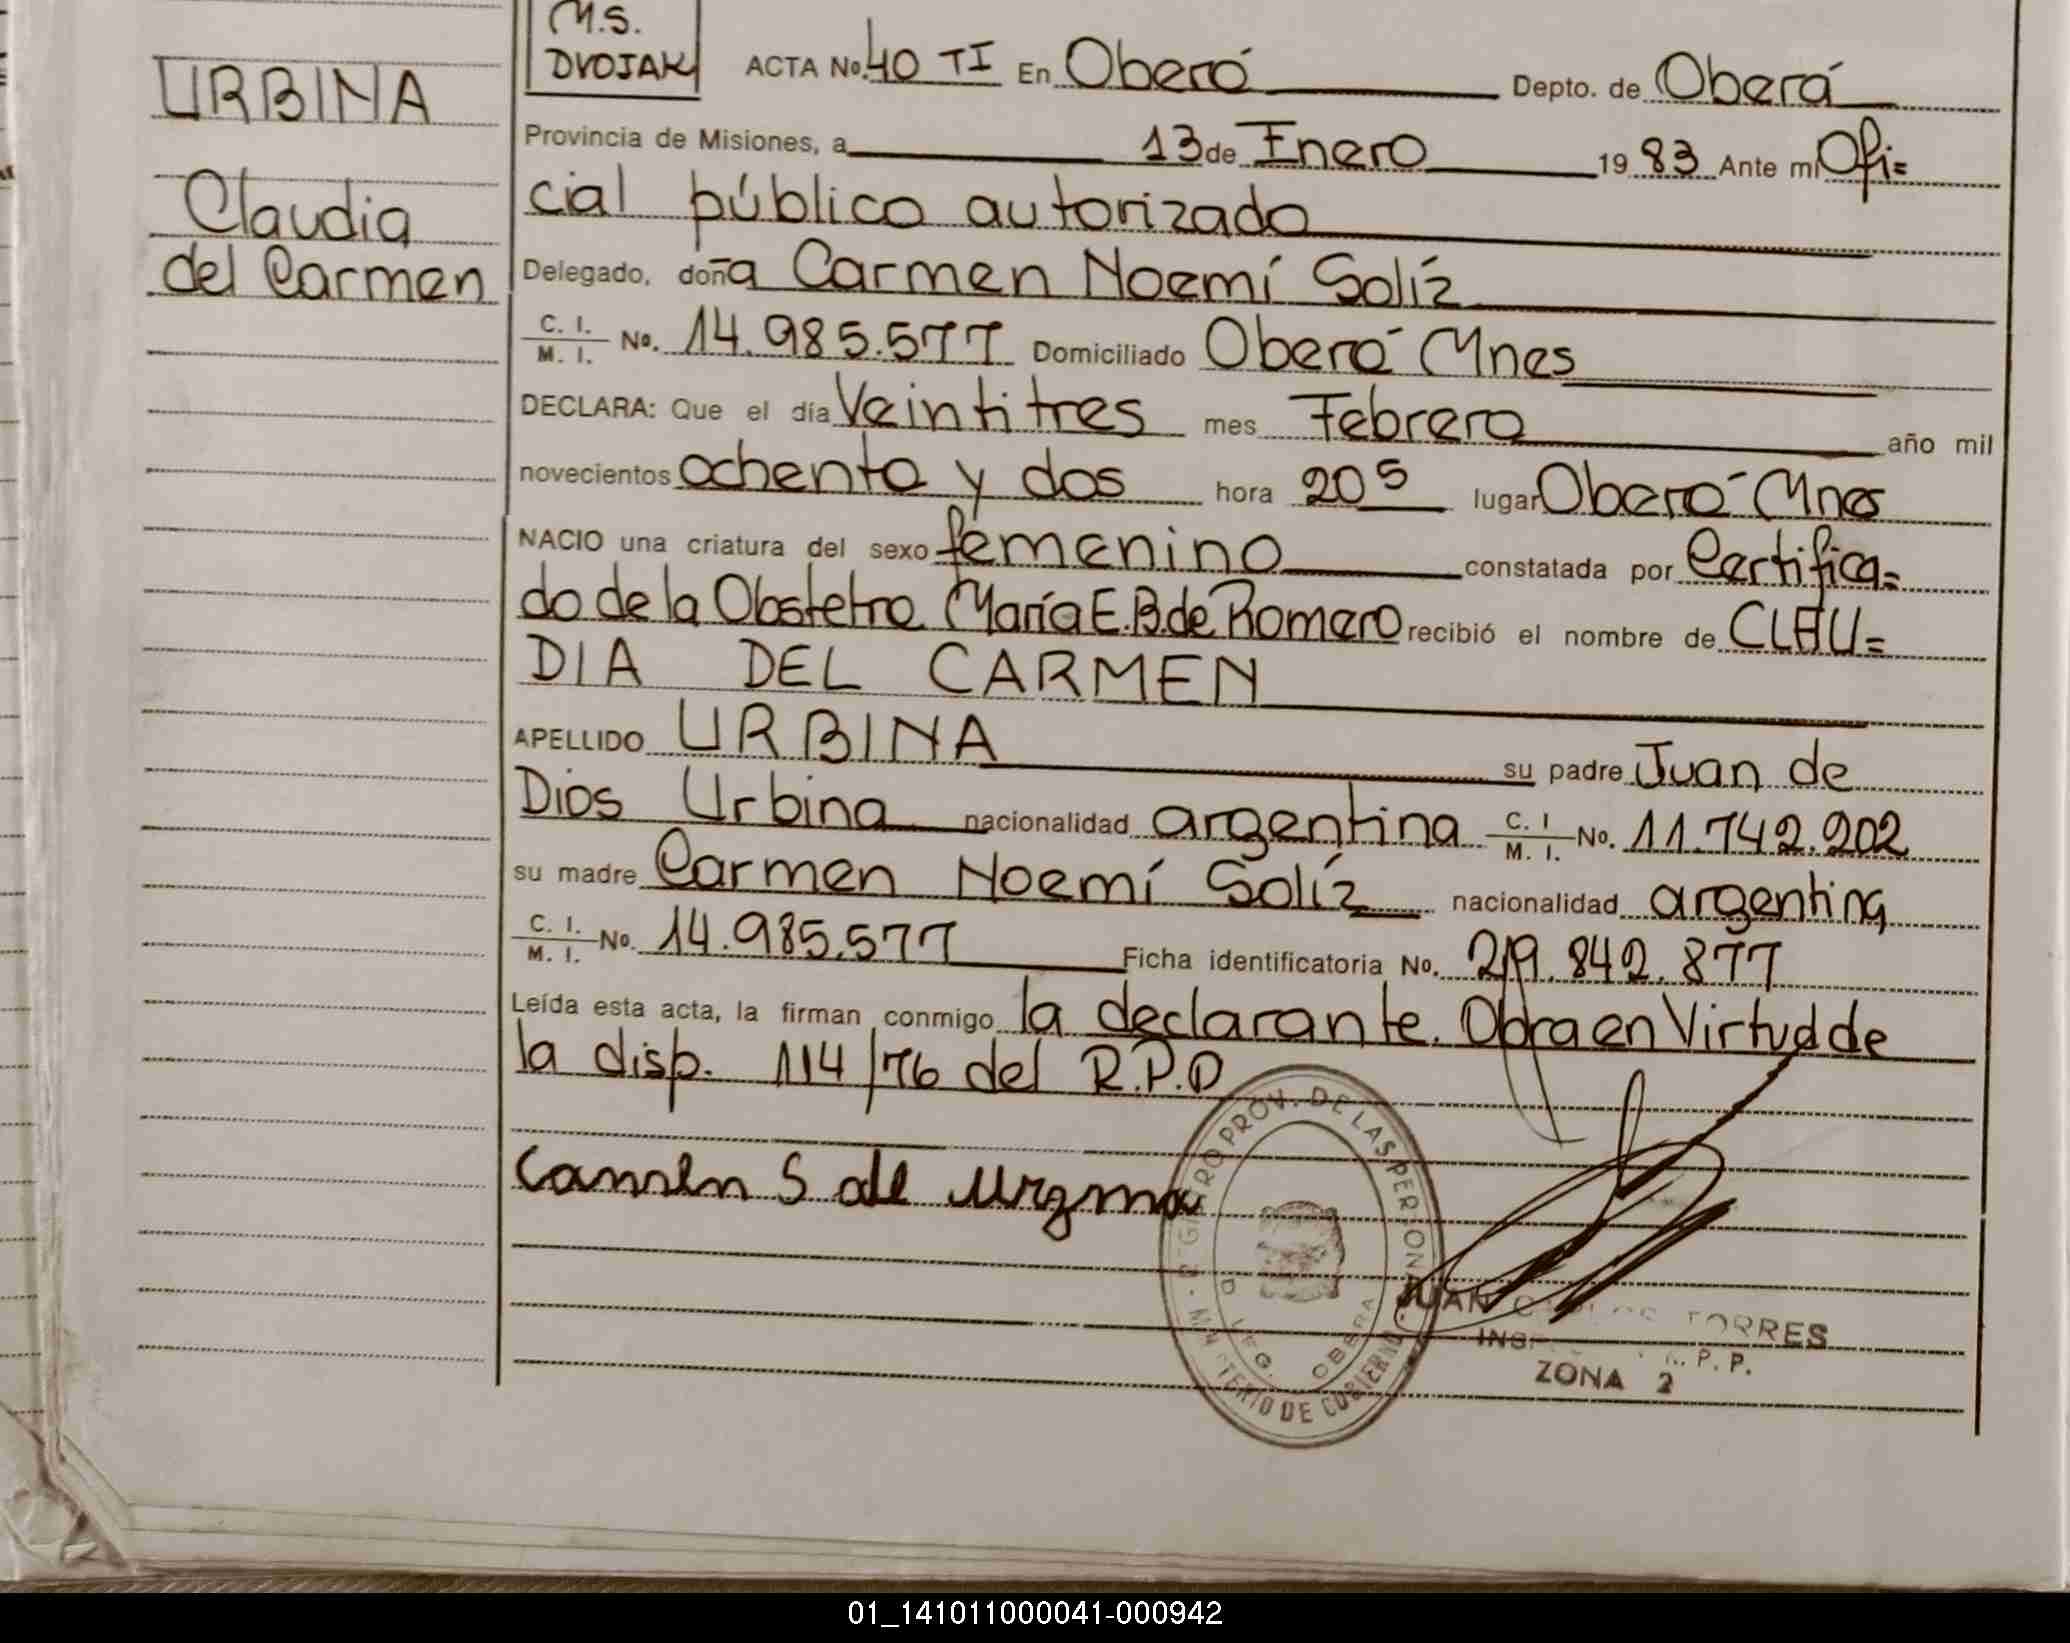 M.S.
DVOJAK
ACTA No. 40 TI En Oberá Depto. de Oberá
URBINA
Provincia de Misiones, a 13 de Enero 1983 Ante mi Ofi=
Claudia
cial público autorizado
del Carmen
Delegado, doña Carmen Noemí Solíz
C. I.
M. I. No. 14.985.577 Domiciliado Oberá Mnes
DECLARA: Que el día Veintitres mes Febrero año mil
novecientos ochenta y dos hora 20 5 lugar Oberá Mnes
NACIO una criatura del sexo femenino constatada por Certifica=
do de la Obstetra María E. B. de Romero recibió el nombre de CLAU=
DIA DEL CARMEN
APELLIDO URBINA su padre Juan de
Dios Urbina nacionalidad argentina C. I. M. I. No. 11.742.202
su madre Carmen Noemí Solíz nacionalidad argentina
C. I.
M. I. No. 14.985.577 Ficha identificatoria No. 219.842.877
Leída esta acta, la firman conmigo la declarante. Obra en Virtud de
la disp. 114/76 del R.P.P
Carmen S de
PROV. DE LAS PERSONAS
DE GOBIERNO
OBERA
JUAN CARLOS TORRES
P. P.
ZONA 2
01_141011000041-000942